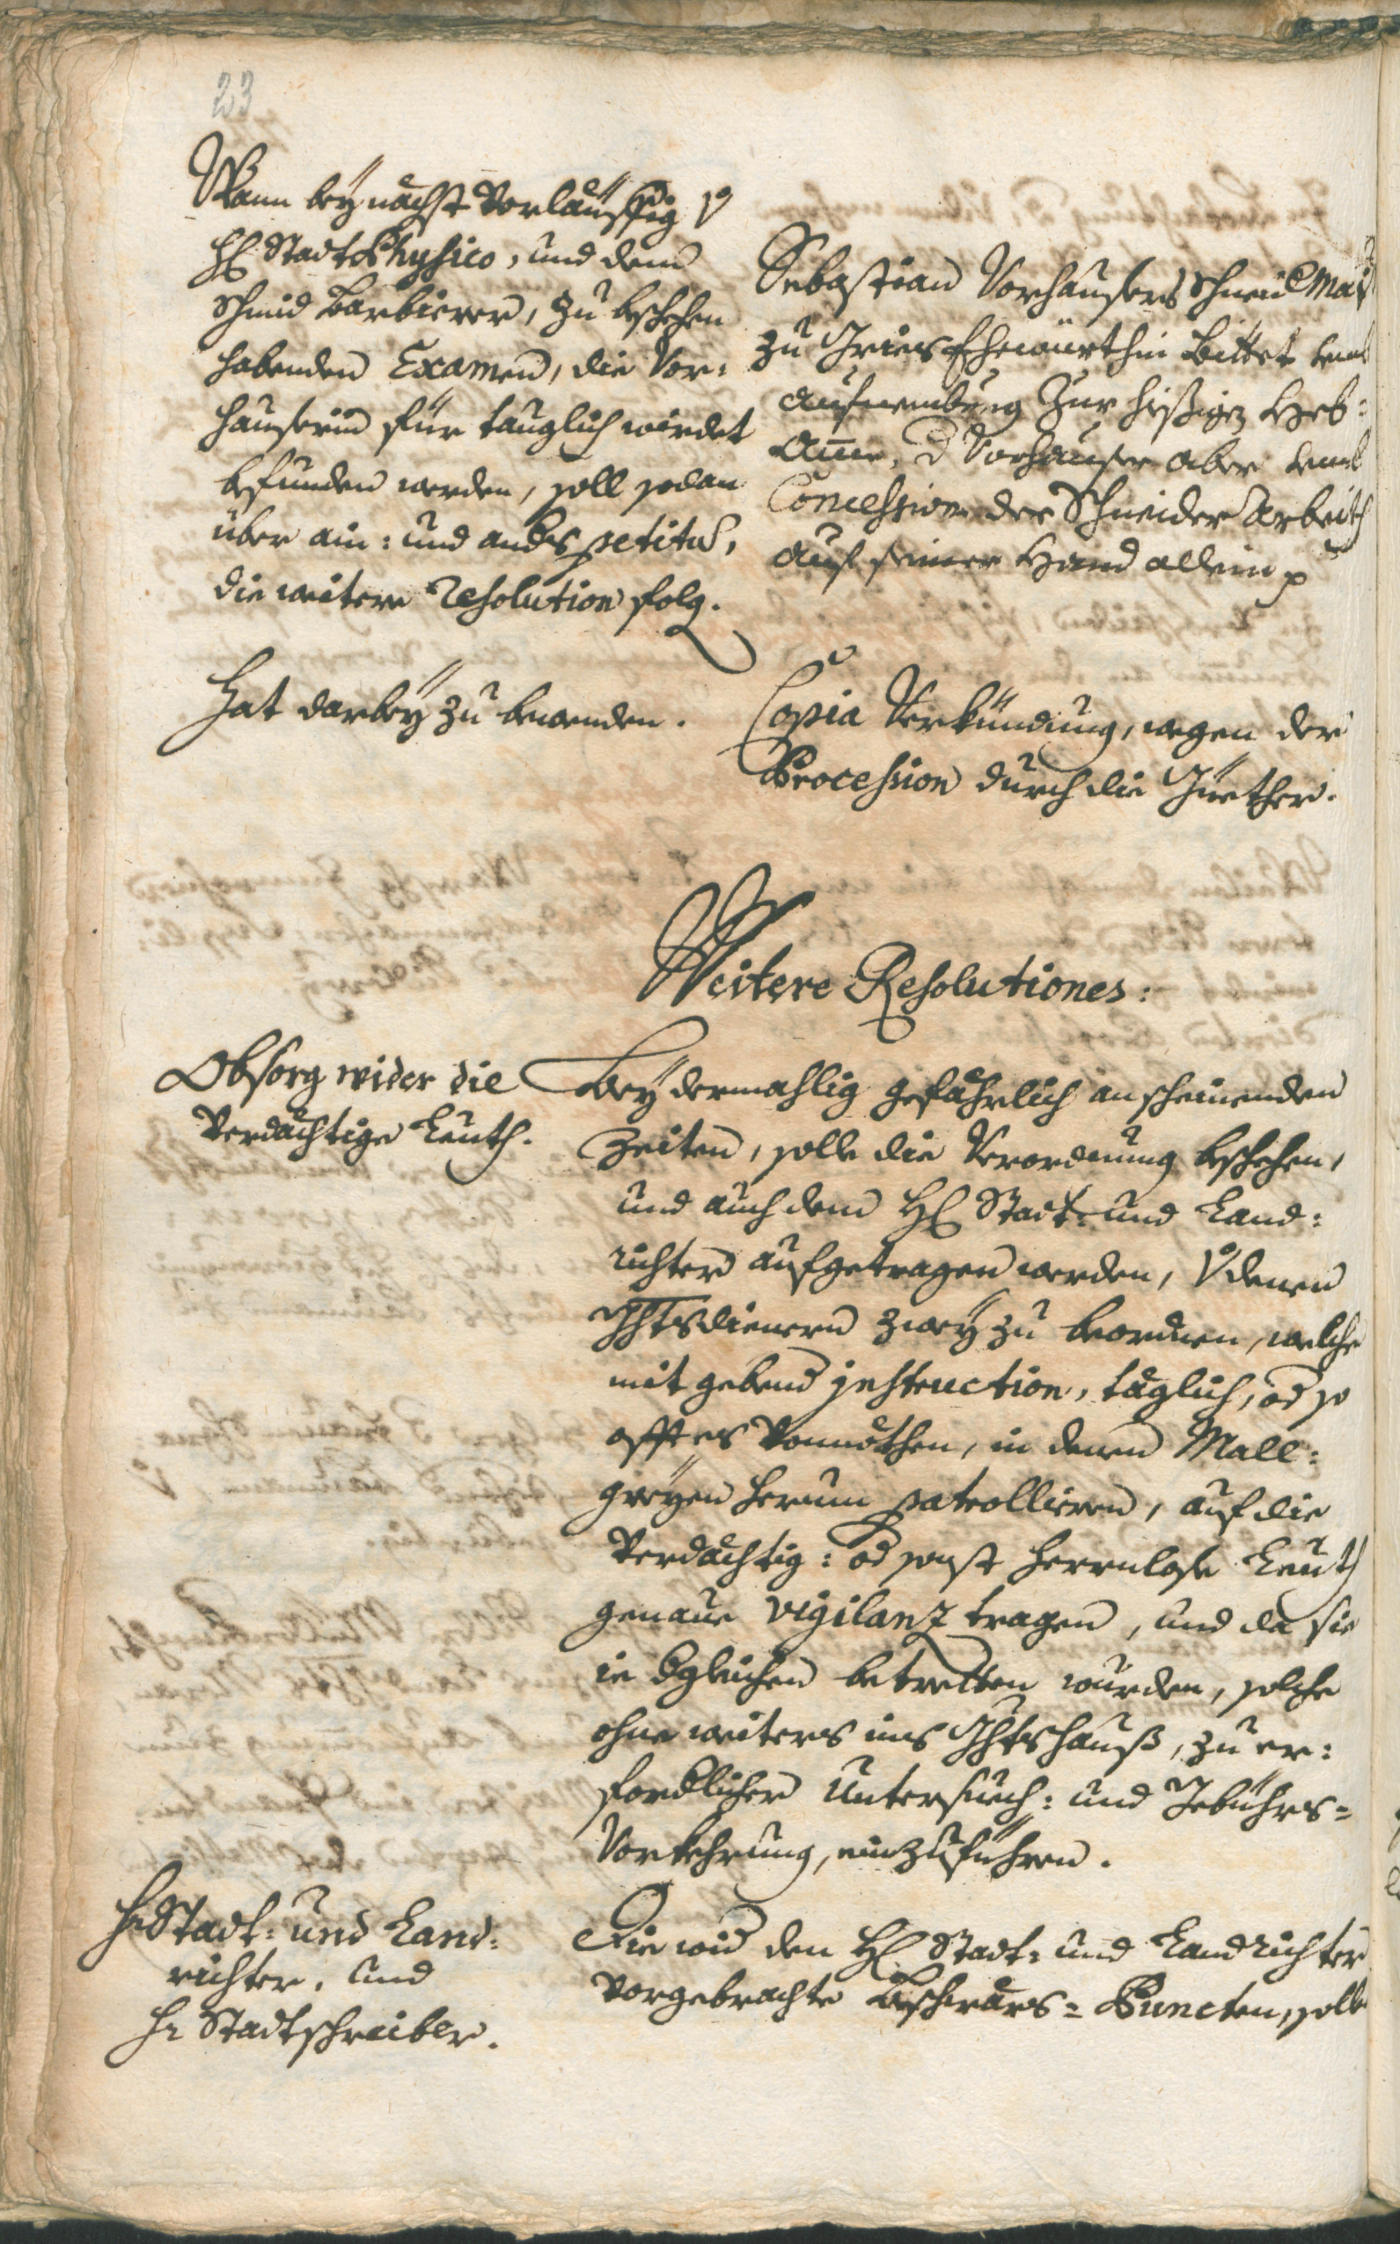 23
Wann beÿ nächst Vorläuffig v
H[errn] Stadt Physico, und dem
Schmid Barbierer, zu beschehen
habenden Examen, die Vor:
hauserin für tauglich wirdet
befunden werden, soll sodan
über ain: und anders petitum,
die weitere Resolution folg.
Sebastian Vorhausers Schneid Mai
zu Gries Ehewürthin bittet umb
aufnembung zur hießigen Heb:
Amme, d Vorhauser aber umb
Concession der Schneider Arbeith
auf seiner Hand allein p
Hat darbeÿ zu bewenden.
Copia Verkündung, wegen der
Procession durch die Güether.
Weitere Resolutiones:
Obsorg wider die
Verdächtige Leuth.
Beÿ dermahlig gefährlich anscheinenden
Zeiten, solle die Verordnung beschehen,
und auch dem H Stadt: und Land:
richter aufgetragen werden, v denen
Ghtsdienern zweÿ zu beordnen, welche
mit gebend jnstruction, täglich, od so
offt es Vonnöthen, in denen Mall:
greÿen herum patrollieren, auf die
Verdächtig: od sonst herrnlose Leuth
genaue vigilanz tragen, und da sie
ie dgleichen betretten wurden, solche
ohne weiters ins Ghtshauß, zu er:
fordlicher Untersuch: und Gebührs=
Vorkehrung, einzuführen.
Hr Stadt: und Land:
richter, und
Hr Stadtschreiber.
Die wid den H Stadt: und Landrichter
vorgebrachte Beschwärs= Puncten, solle